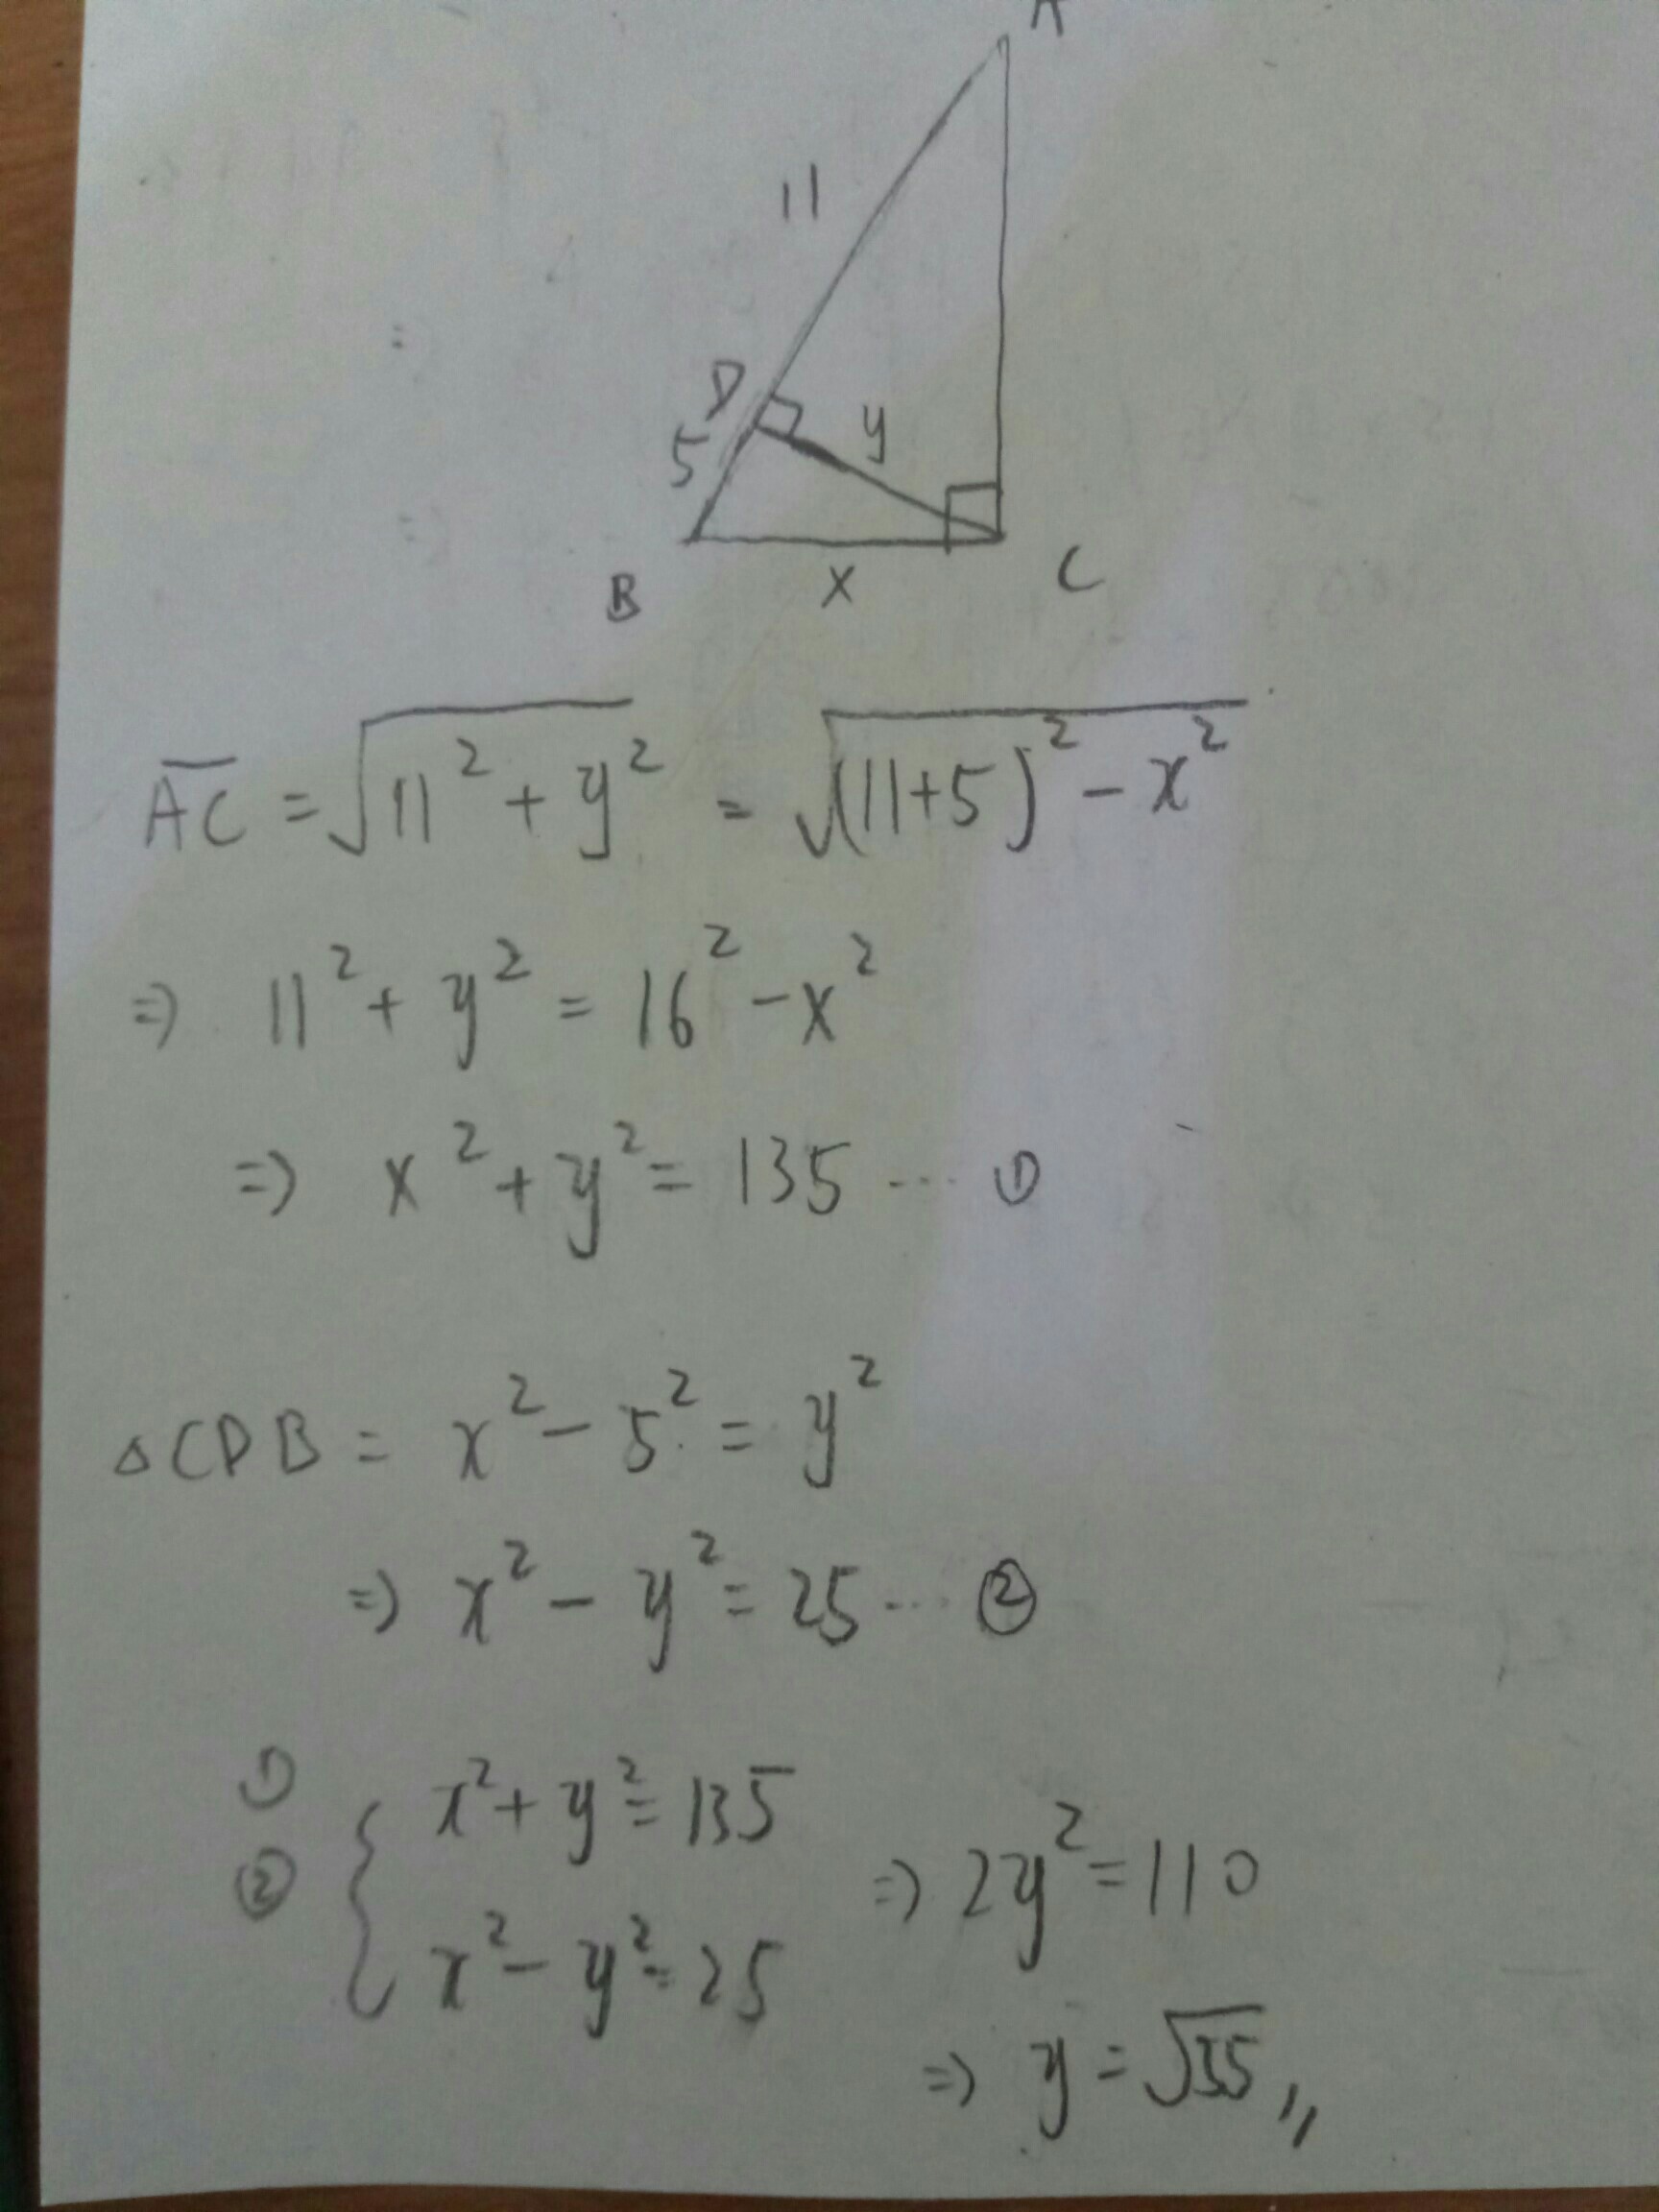 A
11
D
5
y
B
x
C
AC = √11² + y² = √(11+5)² - x²
⇒ 11² + y² = 16² - x²
⇒ x² + y² = 135 ... ①
△CDB = x² - 5² = y²
⇒ x² - y² = 25 ... ②
① x² + y² = 135
⇒ 2y² = 110
② x² - y² = 25
⇒ y = √55 〃